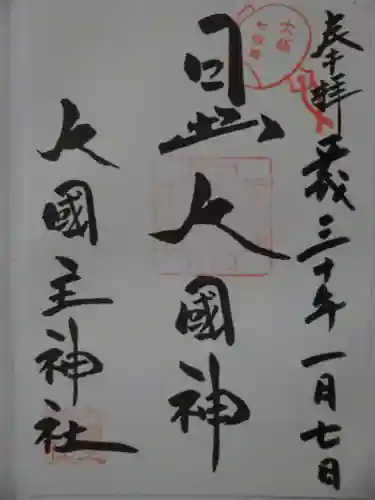 奉拝 平成三十年一月七日
日出大國神
大國主神社
大阪
七福神